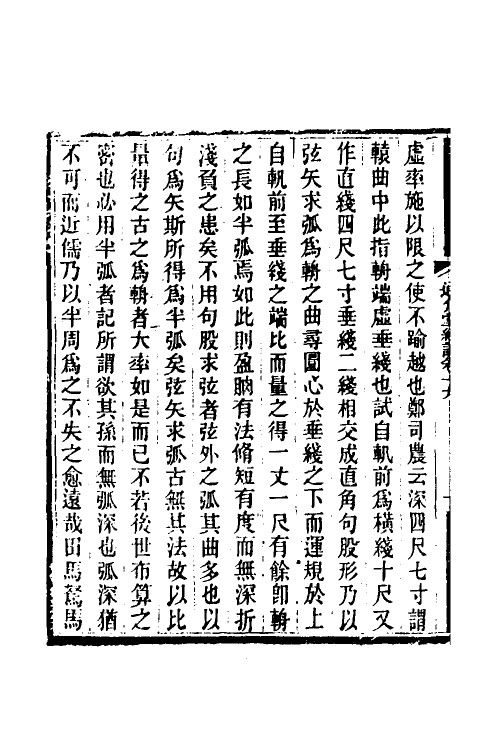 虛率施以限之使不踰越也鄭司農云深四尺七寸謂
轅曲中此指輈端虛垂綫也試自軌前爲橫綫十尺又
作直綫四尺七寸垂綫二綫相交成直角句股形乃以
弦矢求弧爲輈之曲尋圜心於垂綫之下而運規於上
自軌前至垂綫之端比而量之得一丈一尺有餘卽輈
之長如半弧焉如此則盈朒有法脩短有度而無深折
淺負之患矣不用句股求弦者弦外之弧其曲多也以
句爲矢斯所得爲半弧矣弦矢求弧古無其法故以比
量得之古之爲輈者大率如是而已不若後世布算之
密也必用半弧者記所謂欲其孫而無弧深也弧深猶
不可而近儒乃以半周爲之不失之愈遠哉田馬駑馬